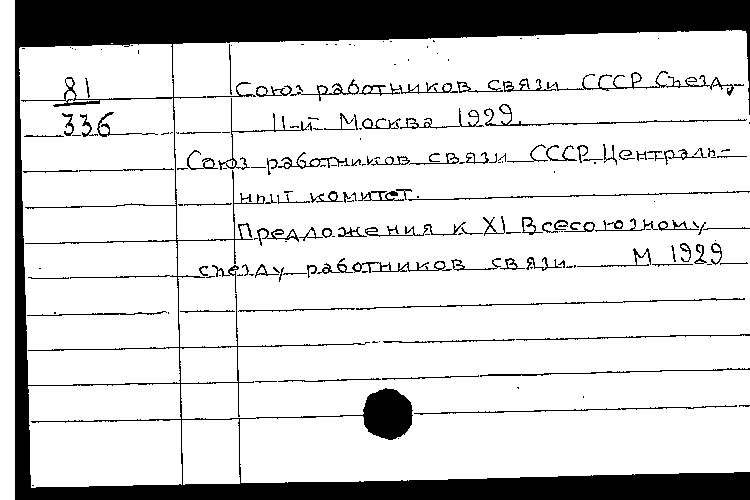 81
336
Союз работников связи СССР Съезд,
11-й Москва 1929.
Союз работников связи СССР. Централь-
ный комитет.
Предложения к XI Всесоюзному
съезду работников связи. М 1929